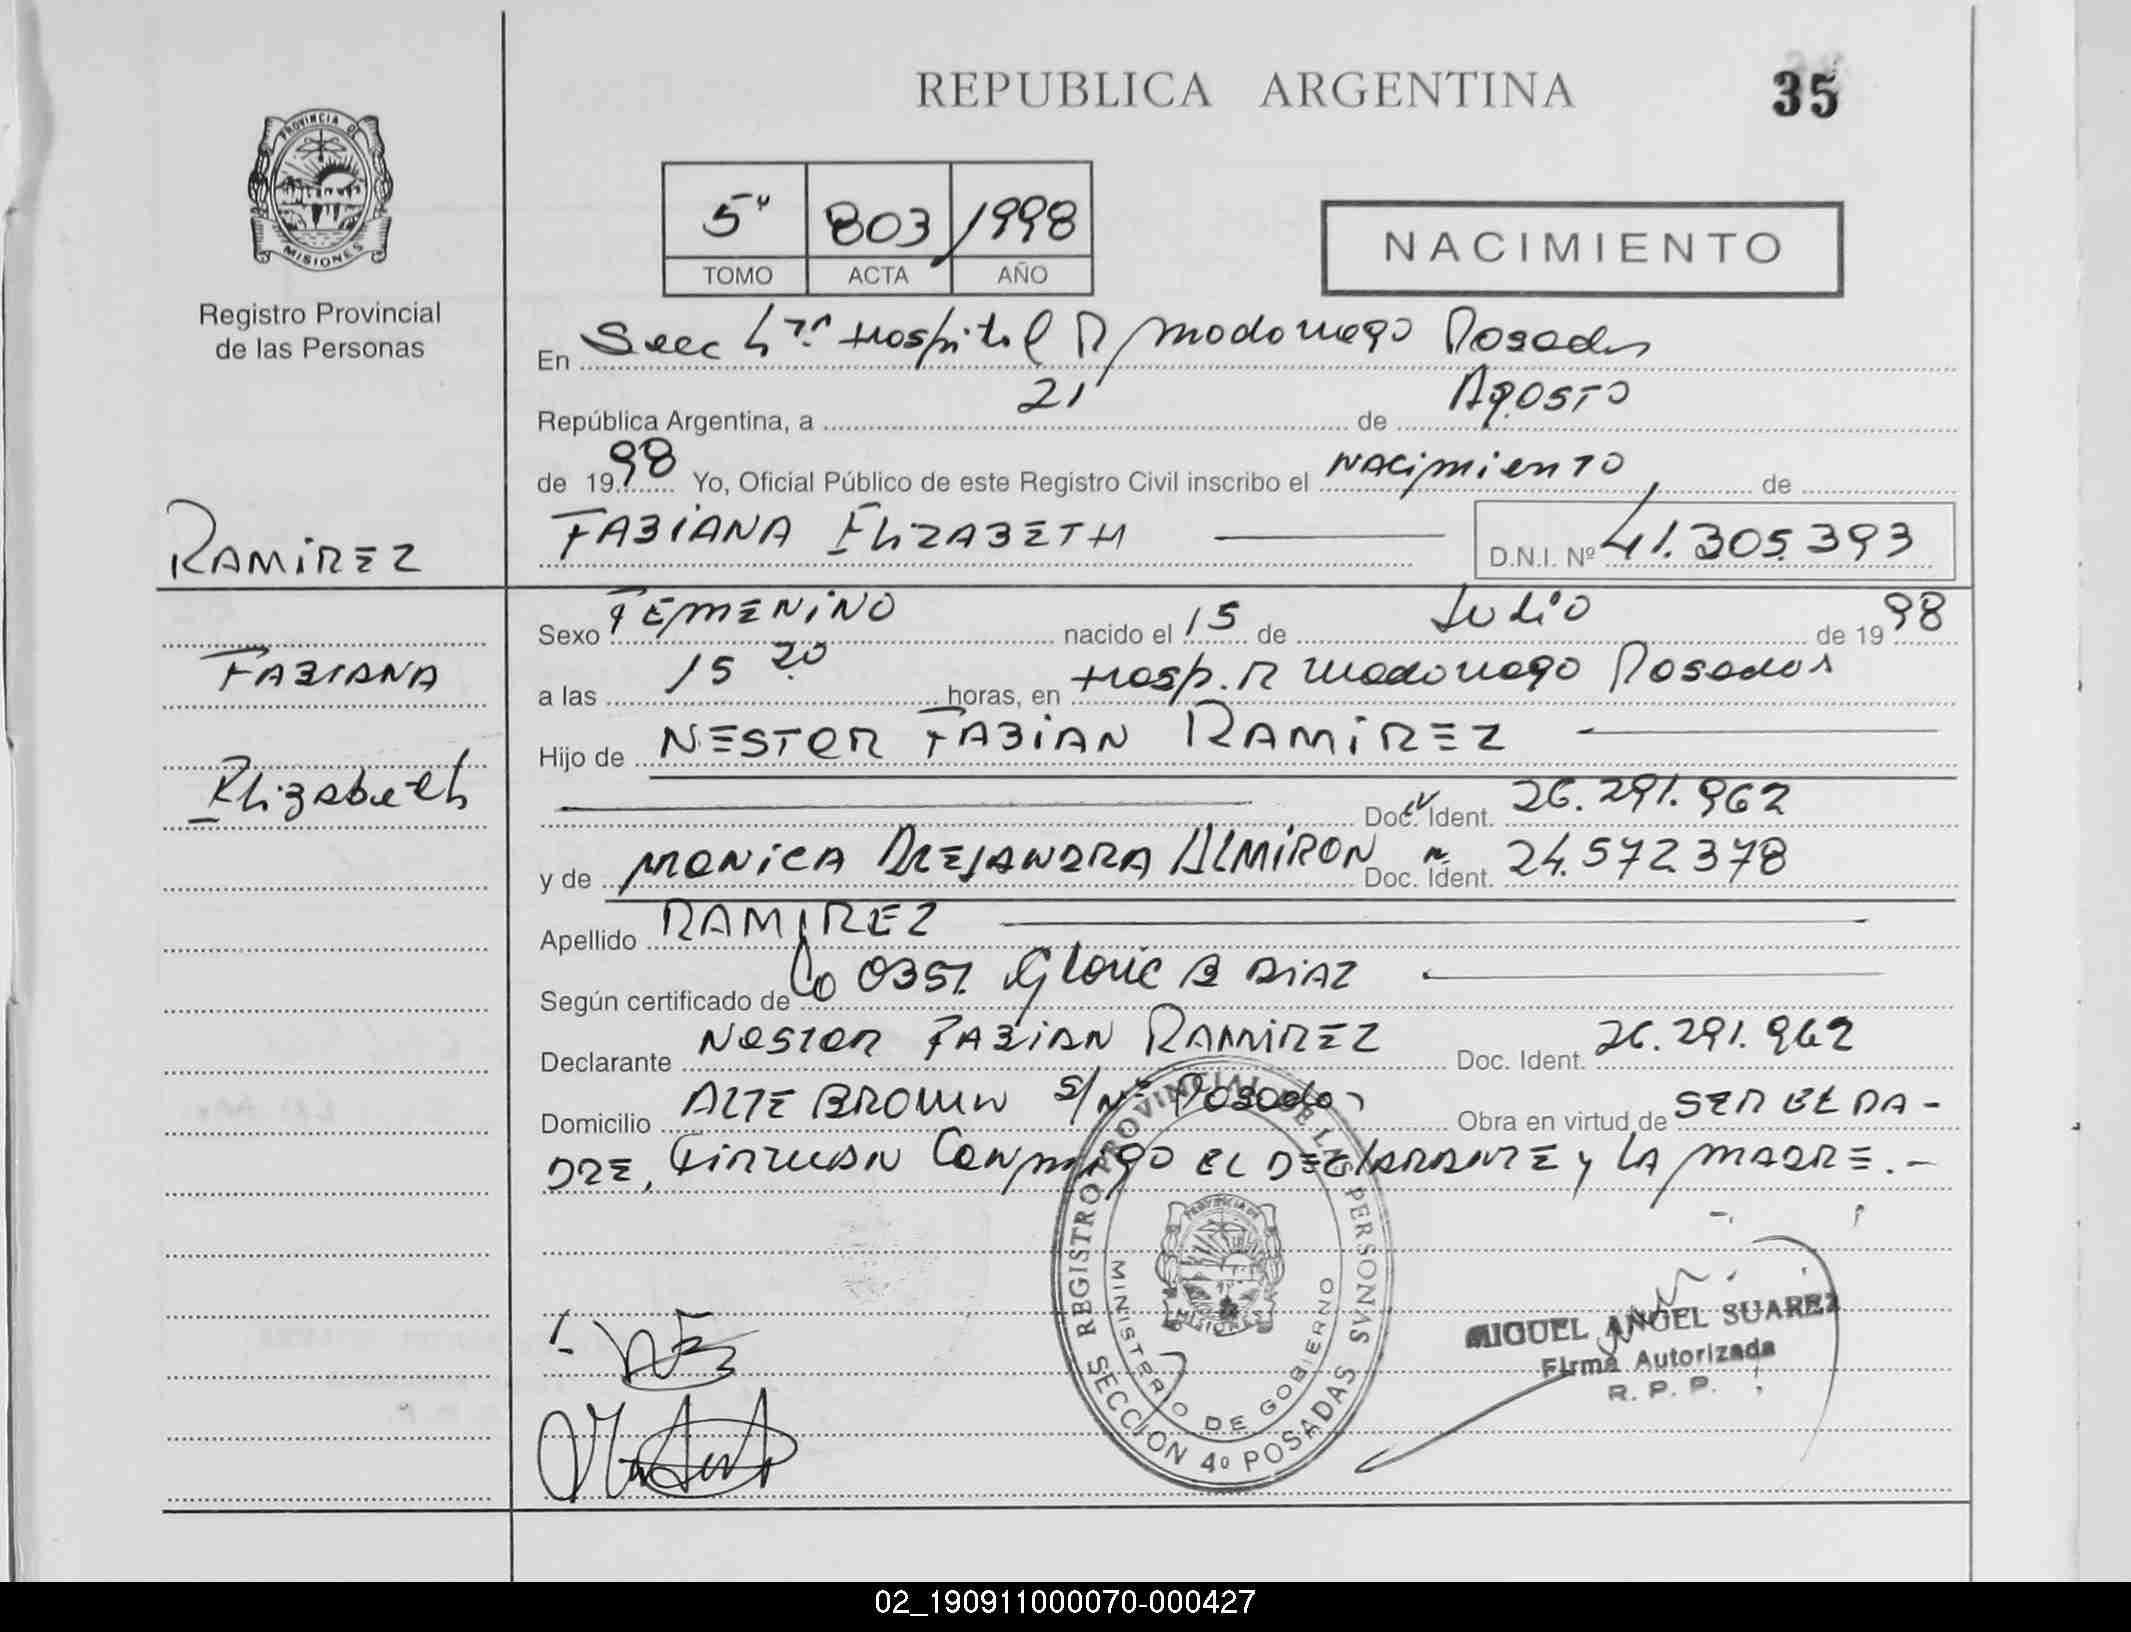 REPUBLICA ARGENTINA
35
PROVINCIA DE
MISIONES
Registro Provincial
de las Personas
5º 803 1998
TOMO ACTA AÑO
NACIMIENTO
En Secc 4ta. Hospital R Madariaga Posadas
República Argentina, a 21 de Agosto
de 1998 Yo, Oficial Público de este Registro Civil inscribo el Nacimiento de
RAMIREZ
FABIANA ELIZABETH D.N.I. Nº 41.305.393
Sexo FEMENINO nacido el 15 de Julio de 1998
FABIANA
a las 15 20 horas, en Hosp. R Madariaga Posadas
Hijo de NESTOR FABIAN RAMIREZ
Elizabeth
Doc. Ident. 26.291.962
y de MONICA ALEJANDRA ALMIRON Doc. Ident. 24.572.378
Apellido RAMIREZ
Según certificado de Gloria B DIAZ
Declarante NESTOR FABIAN RAMIREZ Doc. Ident. 26.291.962
Domicilio ALTE BROWN S/Nº Posadas Obra en virtud de SER EL PA-
DRE, FIRMAN CONMIGO EL DECLARANTE y LA MADRE.-
REGISTRO PROVINCIAL DE LAS PERSONAS
MINISTERIO DE GOBIERNO
SECCION 4º POSADAS
MISIONES
MIGUEL ANGEL SUAREZ
Firma Autorizada
R. P. P.
02_190911000070-000427